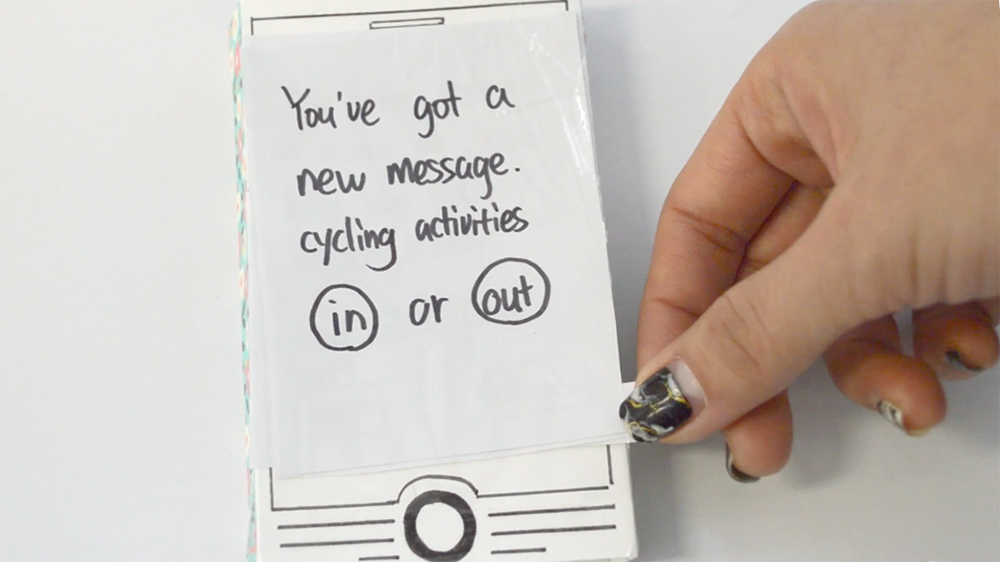 You've got a
new message.
cycling activities
in or out